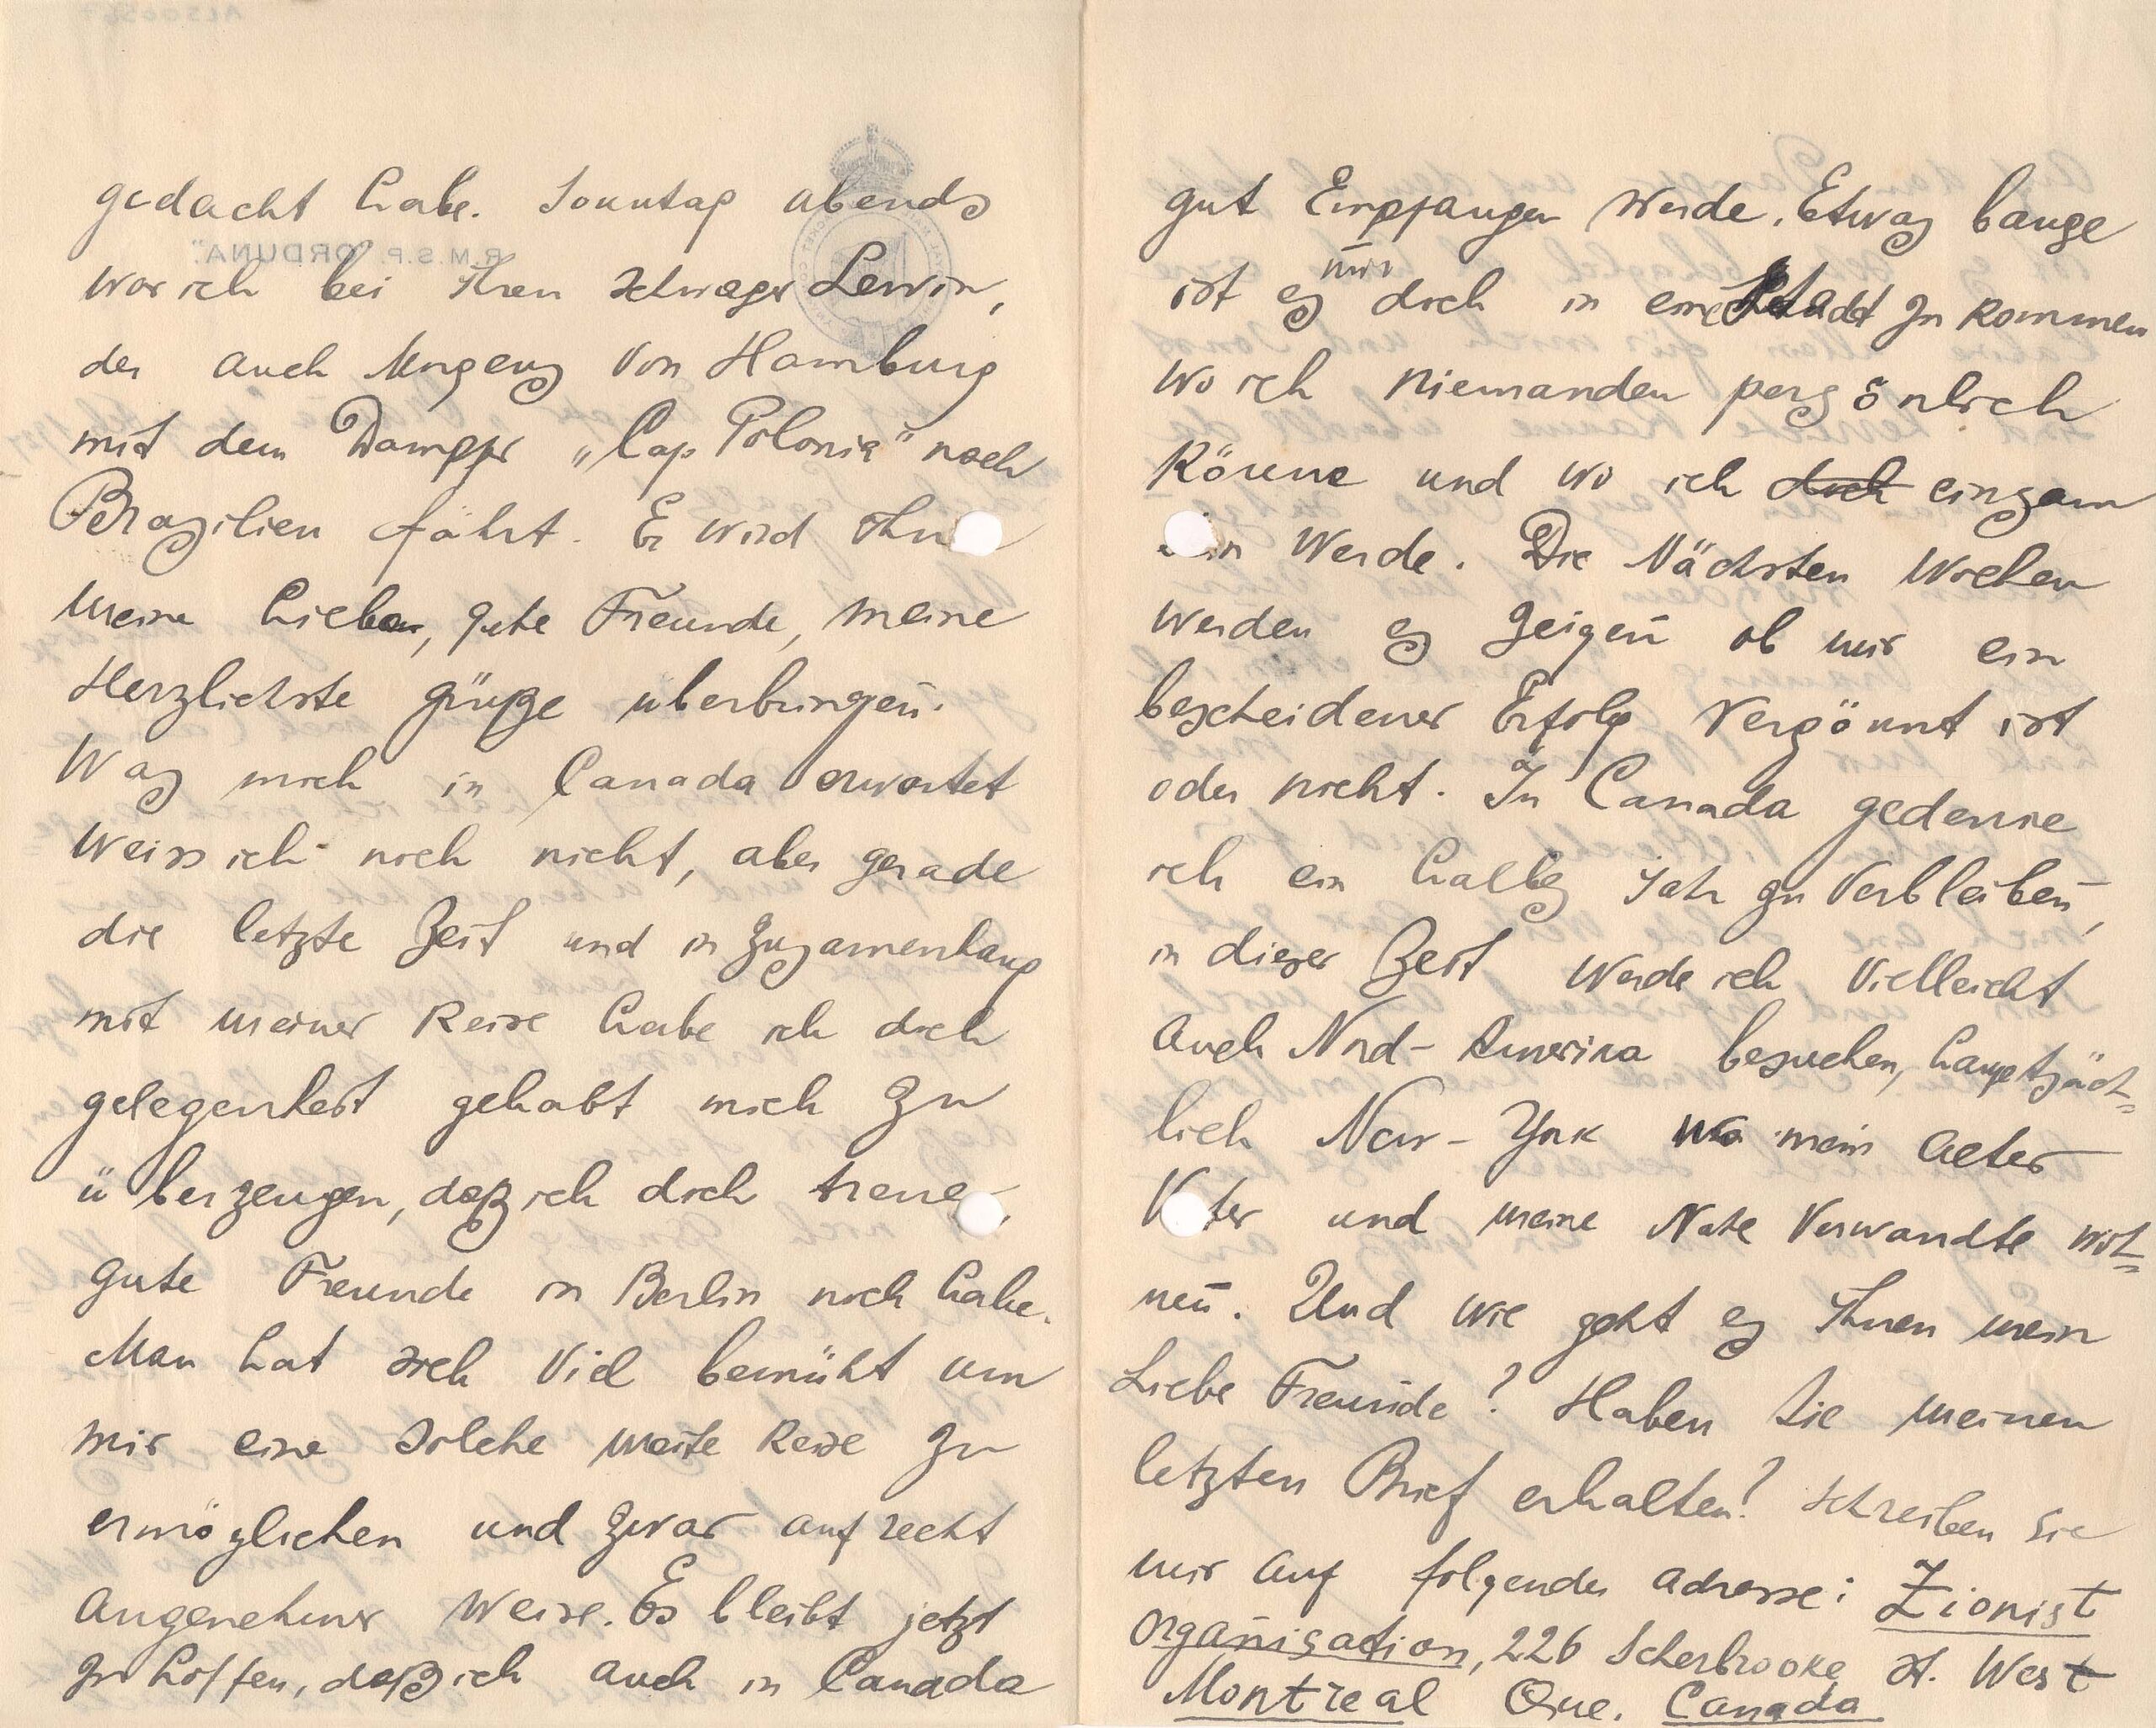 gedacht habe. Sonntag abends
war ich bei Ihren Schwager Lewin,
der auch Morgens von Hamburg
mit dem Dampfer „Cap Polonia" nach
Brasilien fährt. Er wird Ihn
meine Lieben, gute Freunde, meine
Herzlichste grüße überbringen.
Was mich in Canada erwartet
weiss ich noch nicht, aber gerade
die letzte Zeit und in Zusamenhang
mit meiner Reise habe ich doch
gelegenheit gehabt mich zu
überzeugen, daß ich doch treue,
gute Freunde in Berlin noch habe.
Man hat sich viel bemüht um
mir eine solche weite Reise zu
ermöglichen und zwar auf recht
angenehmer Weise. Es bleibt jetzt
zu hoffen, daß ich auch in Canada
gut Empfangen werde. Etwas bange
ist es mir doch in eine Stadt zu kommen
wo ich niemanden persönlich
könne und wo ich doch einsam
in werde. Die Nächsten Wochen
werden es zeigen ob mir ein
bescheidener Erfolg vergönnt ist
oder nicht. In Canada gedenke
ich ein halbes Jahr zu verbleiben,
in dieser Zeit werde ich vielleicht
auch Nord-Amerika besuchen, hauptsäch=
lich New-York wo mein alter
V ter und meine Nahe Verwandte woh=
nen. Und wie geht es Ihnen mein
Liebe Freunde? Haben Sie meinen
letzten Brief erhalten? Schreiben Sie
mir auf folgender adresse: Zionist
Organisation, 226 Scherbrooke st. West
Montreal Que. Canada
R.M.S.P. "ORDUÑA".